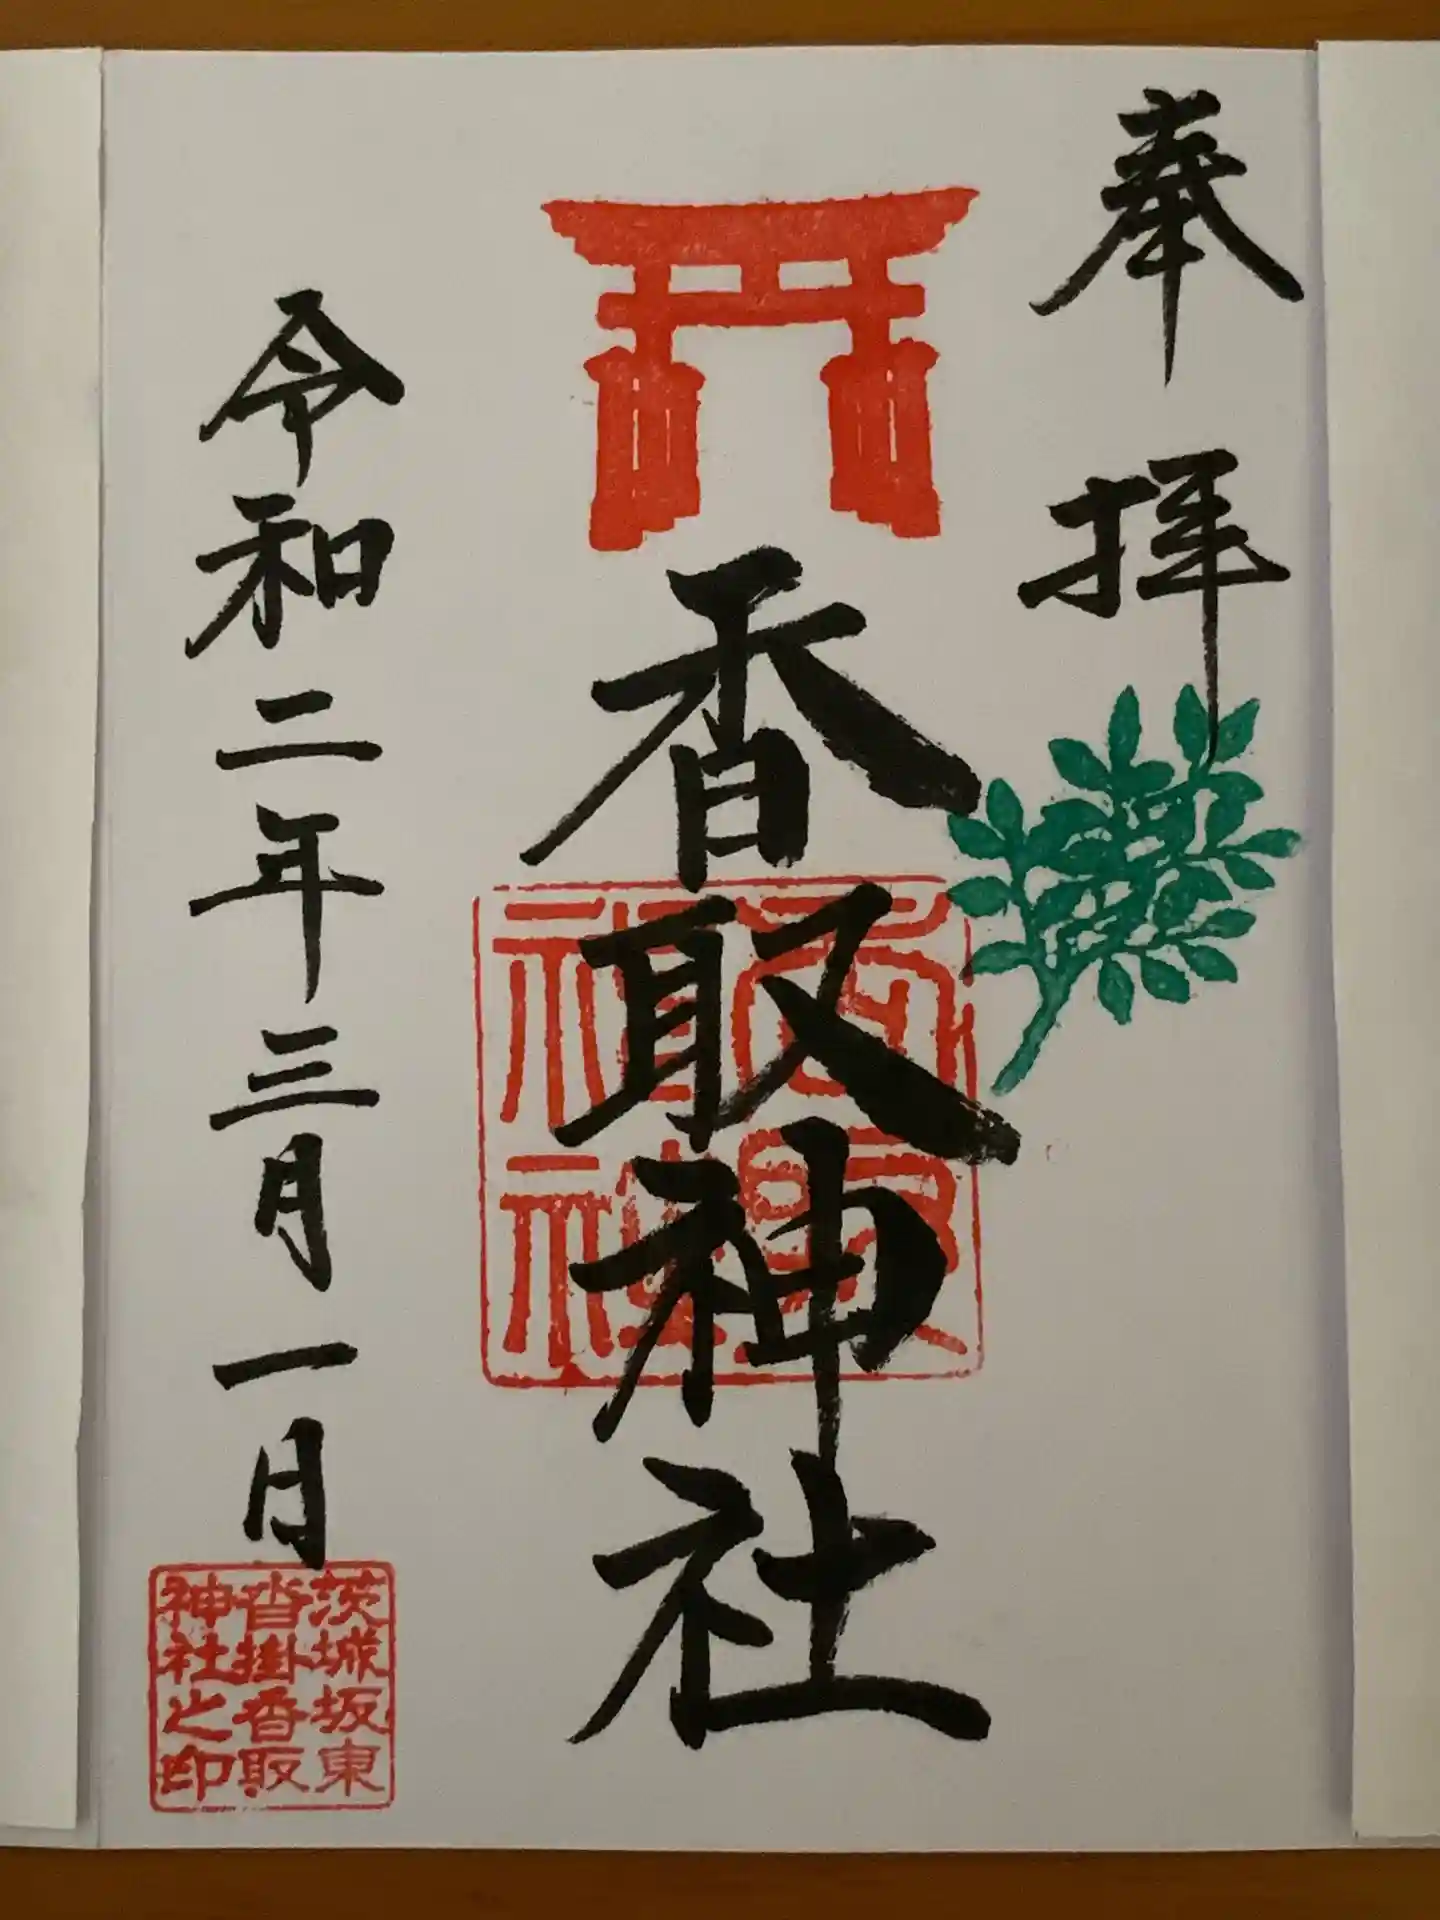 奉拝
香取神社
令和二年三月一日
茨城坂東
沓掛香取
神社之印